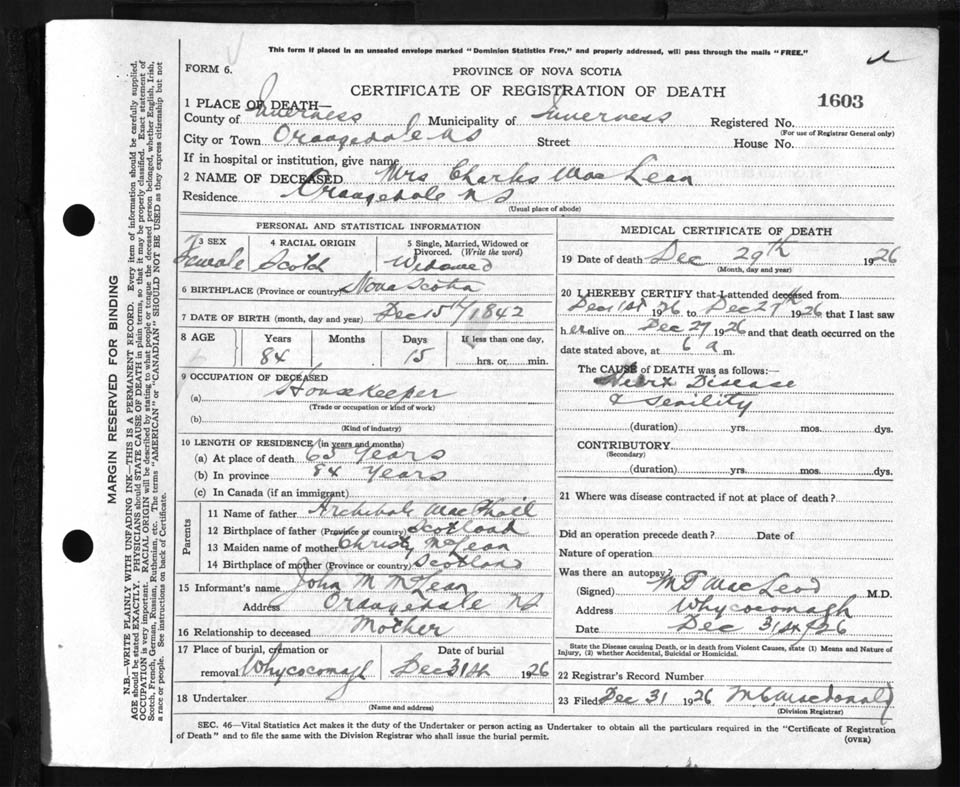 This form if placed in an unsealed envelope marked "Dominion Statistics Free," and properly addressed, will pass through the mails "FREE."
FORM 6.
PROVINCE OF NOVA SCOTIA
CERTIFICATE OF REGISTRATION OF DEATH
1603
1 PLACE OF DEATH—
County of Inverness Municipality of Inverness Registered No.
(For use of Registrar General only)
City or Town Orangedale NS Street House No.
If in hospital or institution, give name
2 NAME OF DECEASED Mrs Charles MacLean
Residence Orangedale NS
(Usual place of abode)
PERSONAL AND STATISTICAL INFORMATION
3 SEX 4 RACIAL ORIGIN 5 Single, Married, Widowed or Divorced. (Write the word)
Female Scotch Widowed
6 BIRTHPLACE (Province or country) Nova Scotia
7 DATE OF BIRTH (month, day and year) Dec 15th/1842
8 AGE Years Months Days If less than one day,
84 15 hrs. or min.
9 OCCUPATION OF DECEASED
(a) Housekeeper
(Trade or occupation or kind of work)
(b)
(Kind of industry)
10 LENGTH OF RESIDENCE (in years and months)
(a) At place of death 65 Years
(b) In province 84 Years
(c) In Canada (if an immigrant)
Parents
11 Name of father Archibald MacPhail
12 Birthplace of father (Province or country) Scotland
13 Maiden name of mother Christy McLean
14 Birthplace of mother (Province or country) Scotland
15 Informant's name John M McLean
Address Orangedale NS
16 Relationship to deceased Mother
17 Place of burial, cremation or removal Whycocomagh Date of burial Dec 31st 1926
18 Undertaker
(Name and address)
MEDICAL CERTIFICATE OF DEATH
19 Date of death Dec 29th 1926
(Month, day and year)
20 I HEREBY CERTIFY that I attended deceased from
Dec 1st 1926 to Dec 27th 1926 that I last saw
her alive on Dec 27 1926 and that death occurred on the
date stated above, at 6 a m.
The CAUSE of DEATH was as follows:—
Heart Disease
& Senility
(duration) yrs. mos. dys.
CONTRIBUTORY
(Secondary)
(duration) yrs. mos. dys.
21 Where was disease contracted if not at place of death?
Did an operation precede death? Date of
Nature of operation
Was there an autopsy?
(Signed) M T MacLeod M.D.
Address Whycocomagh
Date Dec 31st/26
State the Disease causing Death, or in death from Violent Causes, state (1) Means and Nature of Injury, (2) whether Accidental, Suicidal or Homicidal.
22 Registrar's Record Number
23 Filed Dec 31 1926 M.C. Macdonald
(Division Registrar)
SEC. 46—Vital Statistics Act makes it the duty of the Undertaker or person acting as Undertaker to obtain all the particulars required in the "Certificate of Registration
of Death" and to file the same with the Division Registrar who shall issue the burial permit.
(OVER)
MARGIN RESERVED FOR BINDING
N.B.—WRITE PLAINLY WITH UNFADING INK—THIS IS A PERMANENT RECORD. Every item of information should be carefully supplied.
AGE should be stated EXACTLY. PHYSICIANS should STATE CAUSE OF DEATH in plain terms, so that it may be properly classified. Exact statement of
OCCUPATION is very important. RACIAL ORIGIN will be described by stating to what people or tongue the deceased person belonged, whether English, Irish,
Scotch, French, German, Russian, Ruthenian, etc. The terms "AMERICAN" or "CANADIAN" SHOULD NOT BE USED as they express citizenship but not
a race or people. See instructions on back of Certificate.